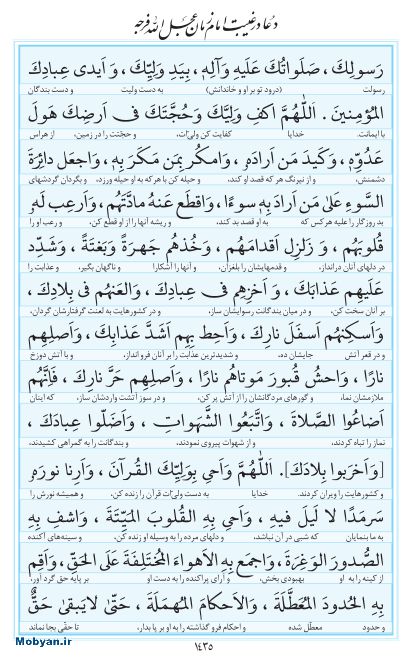 دعا در غیبت امام زمان عجل الله فرجه
رَسولِكَ، صَلَواتُكَ عَلَیهِ وَآلِهِ، بِیَدِ وَلِیِّكَ، وَ اَیدی عِبادِكَ
رسولت (درود تو بر او و خاندانش) به دست ولیت و دست بندگان
المُؤمِنینَ. اَللّٰهُمَّ اكفِ وَلِیَّكَ وَحُجَّتَكَ فی اَرضِكَ هَولَ
با ایمانت. خدایا کفایت کن ولی‌ات، و حجّتت را در زمین، از هراس
عَدُوِّهِ، وَكَیدَ مَن اَرادَهِ، وَامكُر بِمَن مَكَرَ بِهِ، وَاجعَل دائِرَةَ
دشمنش، و از نیرنگ هر که قصد او کند، و حیله کن با هر که به او حیله ورزد، و بگردان گردشهای
السَّوءِ عَلیٰ مَن اَرادَ بِهِ سوءًا، وَاقطَع عَنهُ مادَّتَهُم، وَاَرعِب لَهُ
بد روزگار را علیه هر کس که به او قصد بد کند، و ریشه آنها را از او قطع کن، و رعب او را
قُلوبَهُم، وَ زَلزِل اَقدامَهُم، وَخُذهُم جَهرَةً وَبَغتَةً، وَشَدِّد
در دلهای آنان درانداز، و قدمهایشان را بلغزان، و آنها را آشکارا و ناگهان بگیر، و عذابت را
عَلَیهِم عَذابَكَ، وَ اَخزِهِم فی عِبادِكَ، وَالعَنهُم فی بِلادِكَ،
بر آنان سخت کن، و در میان بندگانت رسوایشان ساز، و در کشورهایت به لعنت گرفتارشان گردان،
وَاَسكِنهُم اَسفَلَ نارِكَ، وَاَحِط بِهِم اَشَدَّ عَذابِكَ، وَاَصلِهِم
و در قعر آتش جایشان ده، و شدیدترین عذابت را بر آنان فرو انداز، و با آتش دوزخ
نارًا، وَاحشُ قُبورَ مَوتاهُم نارًا، وَاَصلِهِم حَرَّ نارِكَ، فَاِنَّهُم
ملازمشان نما، و گورهای مردگانشان را از آتش پر کن، و در سوز آتشت واردشان ساز، که اینان
اَضاعُوا الصَّلاةَ، وَاتَّبَعُوا الشَّهَواتِ، وَاَضَلّوا عِبادَكَ،
نماز را تباه کردند، و از شهوات پیروی نمودند، و بندگانت را به گمراهی کشیدند،
[وَاَخرَبوا بِلادَكَ]. اَللّٰهُمَّ وَاَحیِ بِوَلِیِّكَ القُرآنَ، وَاَرِنا نورَهُ
و کشورهایت را ویران کردند. خدایا به دست ولی‌ات قرآن را زنده کن، و همیشه نورش را
سَرمَدًا لا لَیلَ فیهِ، وَاَحیِ بِهِ القُلوبَ المَیِّتَةَ، وَاشفِ بِهِ
به ما بنمایان که شبی در آن نباشد، و دلهای مرده را به وسیله او زنده کن، و سینه‌های آکنده
الصُّدورَ الوَغِرَةَ، وَاجمَع بِهِ الاَهواءَ المُختَلِفَةَ عَلَی الحَقِّ، وَاَقِم
از کینه را به او بهبودی بخش، و آرای پراکنده را به دست او بر پایه حق گرد آور،
بِهِ الحُدودَ المُعَطَّلَةَ، وَالاَحكامَ المُهمَلَةَ، حَتّیٰ لا یَبقیٰ حَقٌّ
و حدود معطّل شده و احکام فرو گذاشته را به او بر پا بدار، تا حقّی بجا نماند
۱۴۳۵
Mobyan.ir